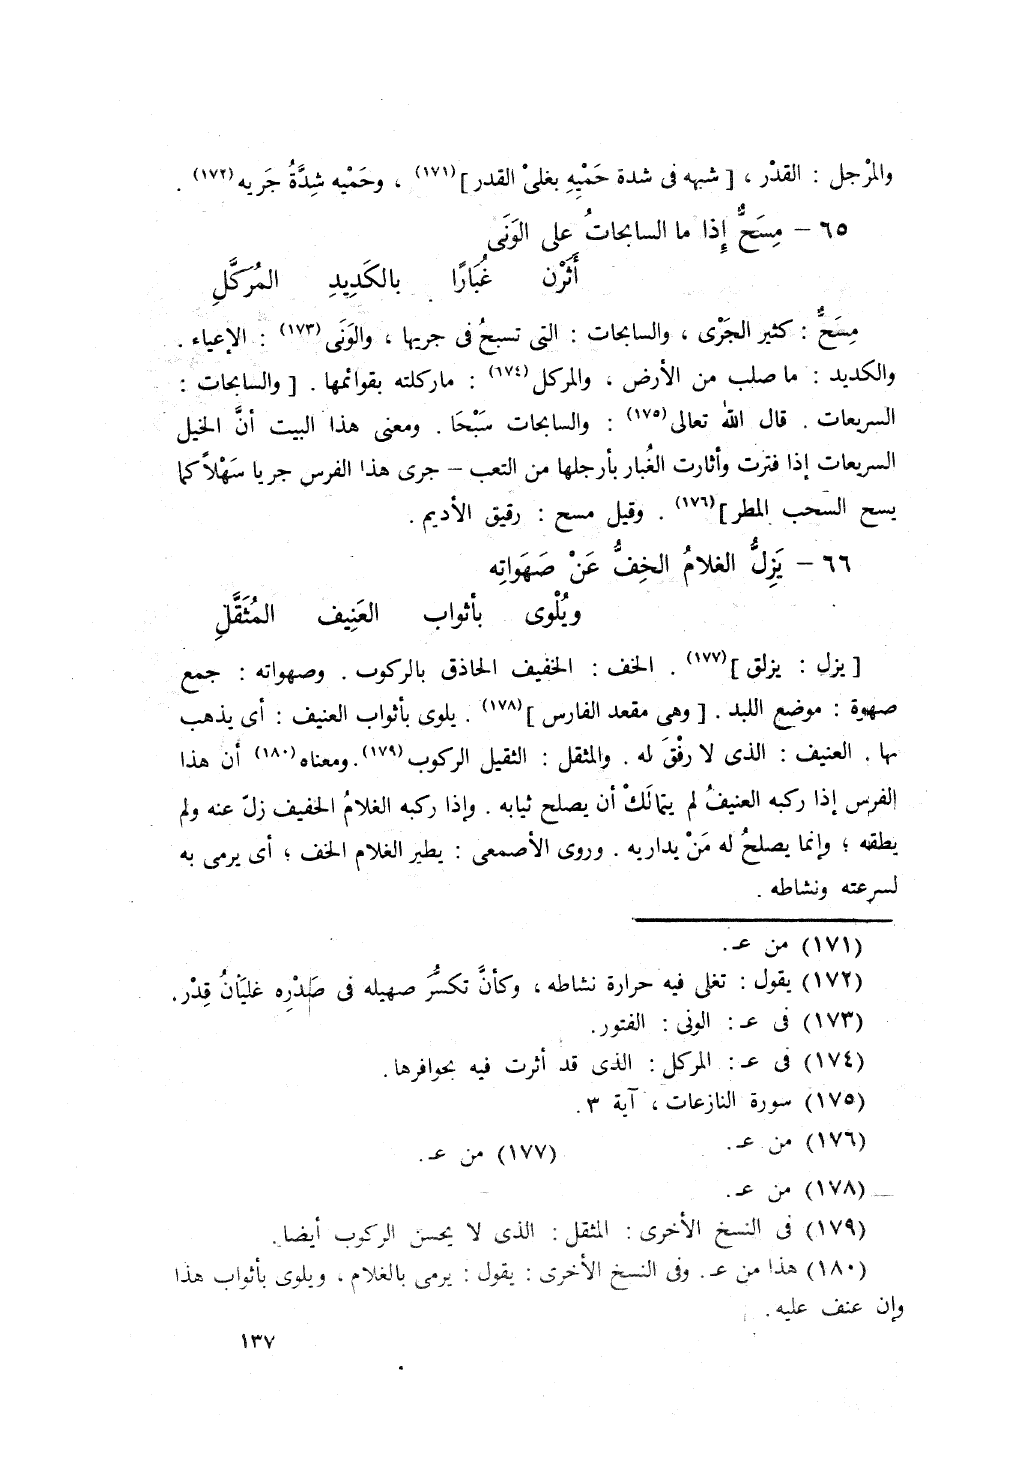 والمرْجل : القدْر ، [ شبهه فى شدة حَمْيِهِ بغلىْ القدر ](١٧١) ، وحَمْيه شِدَّةُ جَريه(١٧٢) .
٦٥ – مِسَحٌّ إِذا ما السابحاتُ على الوَنَى
أَثَرْن غُبَارًا بالكَدِيدِ المُرَكَّلِ
مِسَحٌّ : كثير الجَرْى ، والسابحات : التى تسبحُ فى جريها ، والوَنَى(١٧٣) : الإعياء .
والكديد : ما صلب من الأرض ، والمركل(١٧٤) : ماركلته بقوائمها . [ والسابحات :
السريعات . قال اللهُ تعالى(١٧٥) : والسابحات سَبْحَا . ومعنى هذا البيت أنَّ الخيل
السريعات إذا فترت وأثارت الغُبار بأرجلها من التعب – جرى هذا الفرس جريا سَهْلاً كما
يسح السحب المطر ](١٧٦) . وقيل مسح : رقيق الأديم .
٦٦ – يَزِلُّ الغلامُ الخِفُّ عَنْ صَهَواتِه
ويُلْوى بأثواب العَنِيف المُثَقَّلِ
[ يزل : يزلق ](١٧٧) . الخف : الخفيف الحاذق بالركوب . وصهواته : جمع
صهوة : موضع اللبد . [ وهى مقعد الفارس ](١٧٨) . يلوى بأثواب العنيف : أى يذهب
بها . العنيف : الذى لا رفْقَ له . والمثقل : الثقيل الركوب(١٧٩). ومعناه(١٨٠) أن هذا
الفرس إذا ركبه العنيفُ لم يتمالَكْ أن يصلح ثيابه . وإذا ركبه الغلامُ الخفيف زلّ عنه ولم
يطقه ؛ وإنما يصلحُ له مَنْ يداريه . وروى الأصمعى : يطير الغلام الخف ؛ أى يرمى به
لسرعته ونشاطه .
(١٧١) من عـ .
(١٧٢) يقول : تغلى فيه حرارة نشاطه ، وكأنَّ تكسُّرَ صهيله فى صَدْرِه غليَانُ قِدْر .
(١٧٣) فى عـ : الونى : الفتور .
(١٧٤) فى عـ : المركل : الذى قد أثرت فيه بحوافرها .
(١٧٥) سورة النازعات ، آية ٣ .
(١٧٦) من عـ .
(١٧٧) من عـ .
(١٧٨) من عـ .
(١٧٩) فى النسخ الأخرى : المثقل : الذى لا يحسن الركوب أيضا .
(١٨٠) هذا من عـ . وفى النسخ الأخرى : يقول : يرمى بالغلام ، ويلوى بأثواب هذا
وإن عنف عليه .
١٣٧